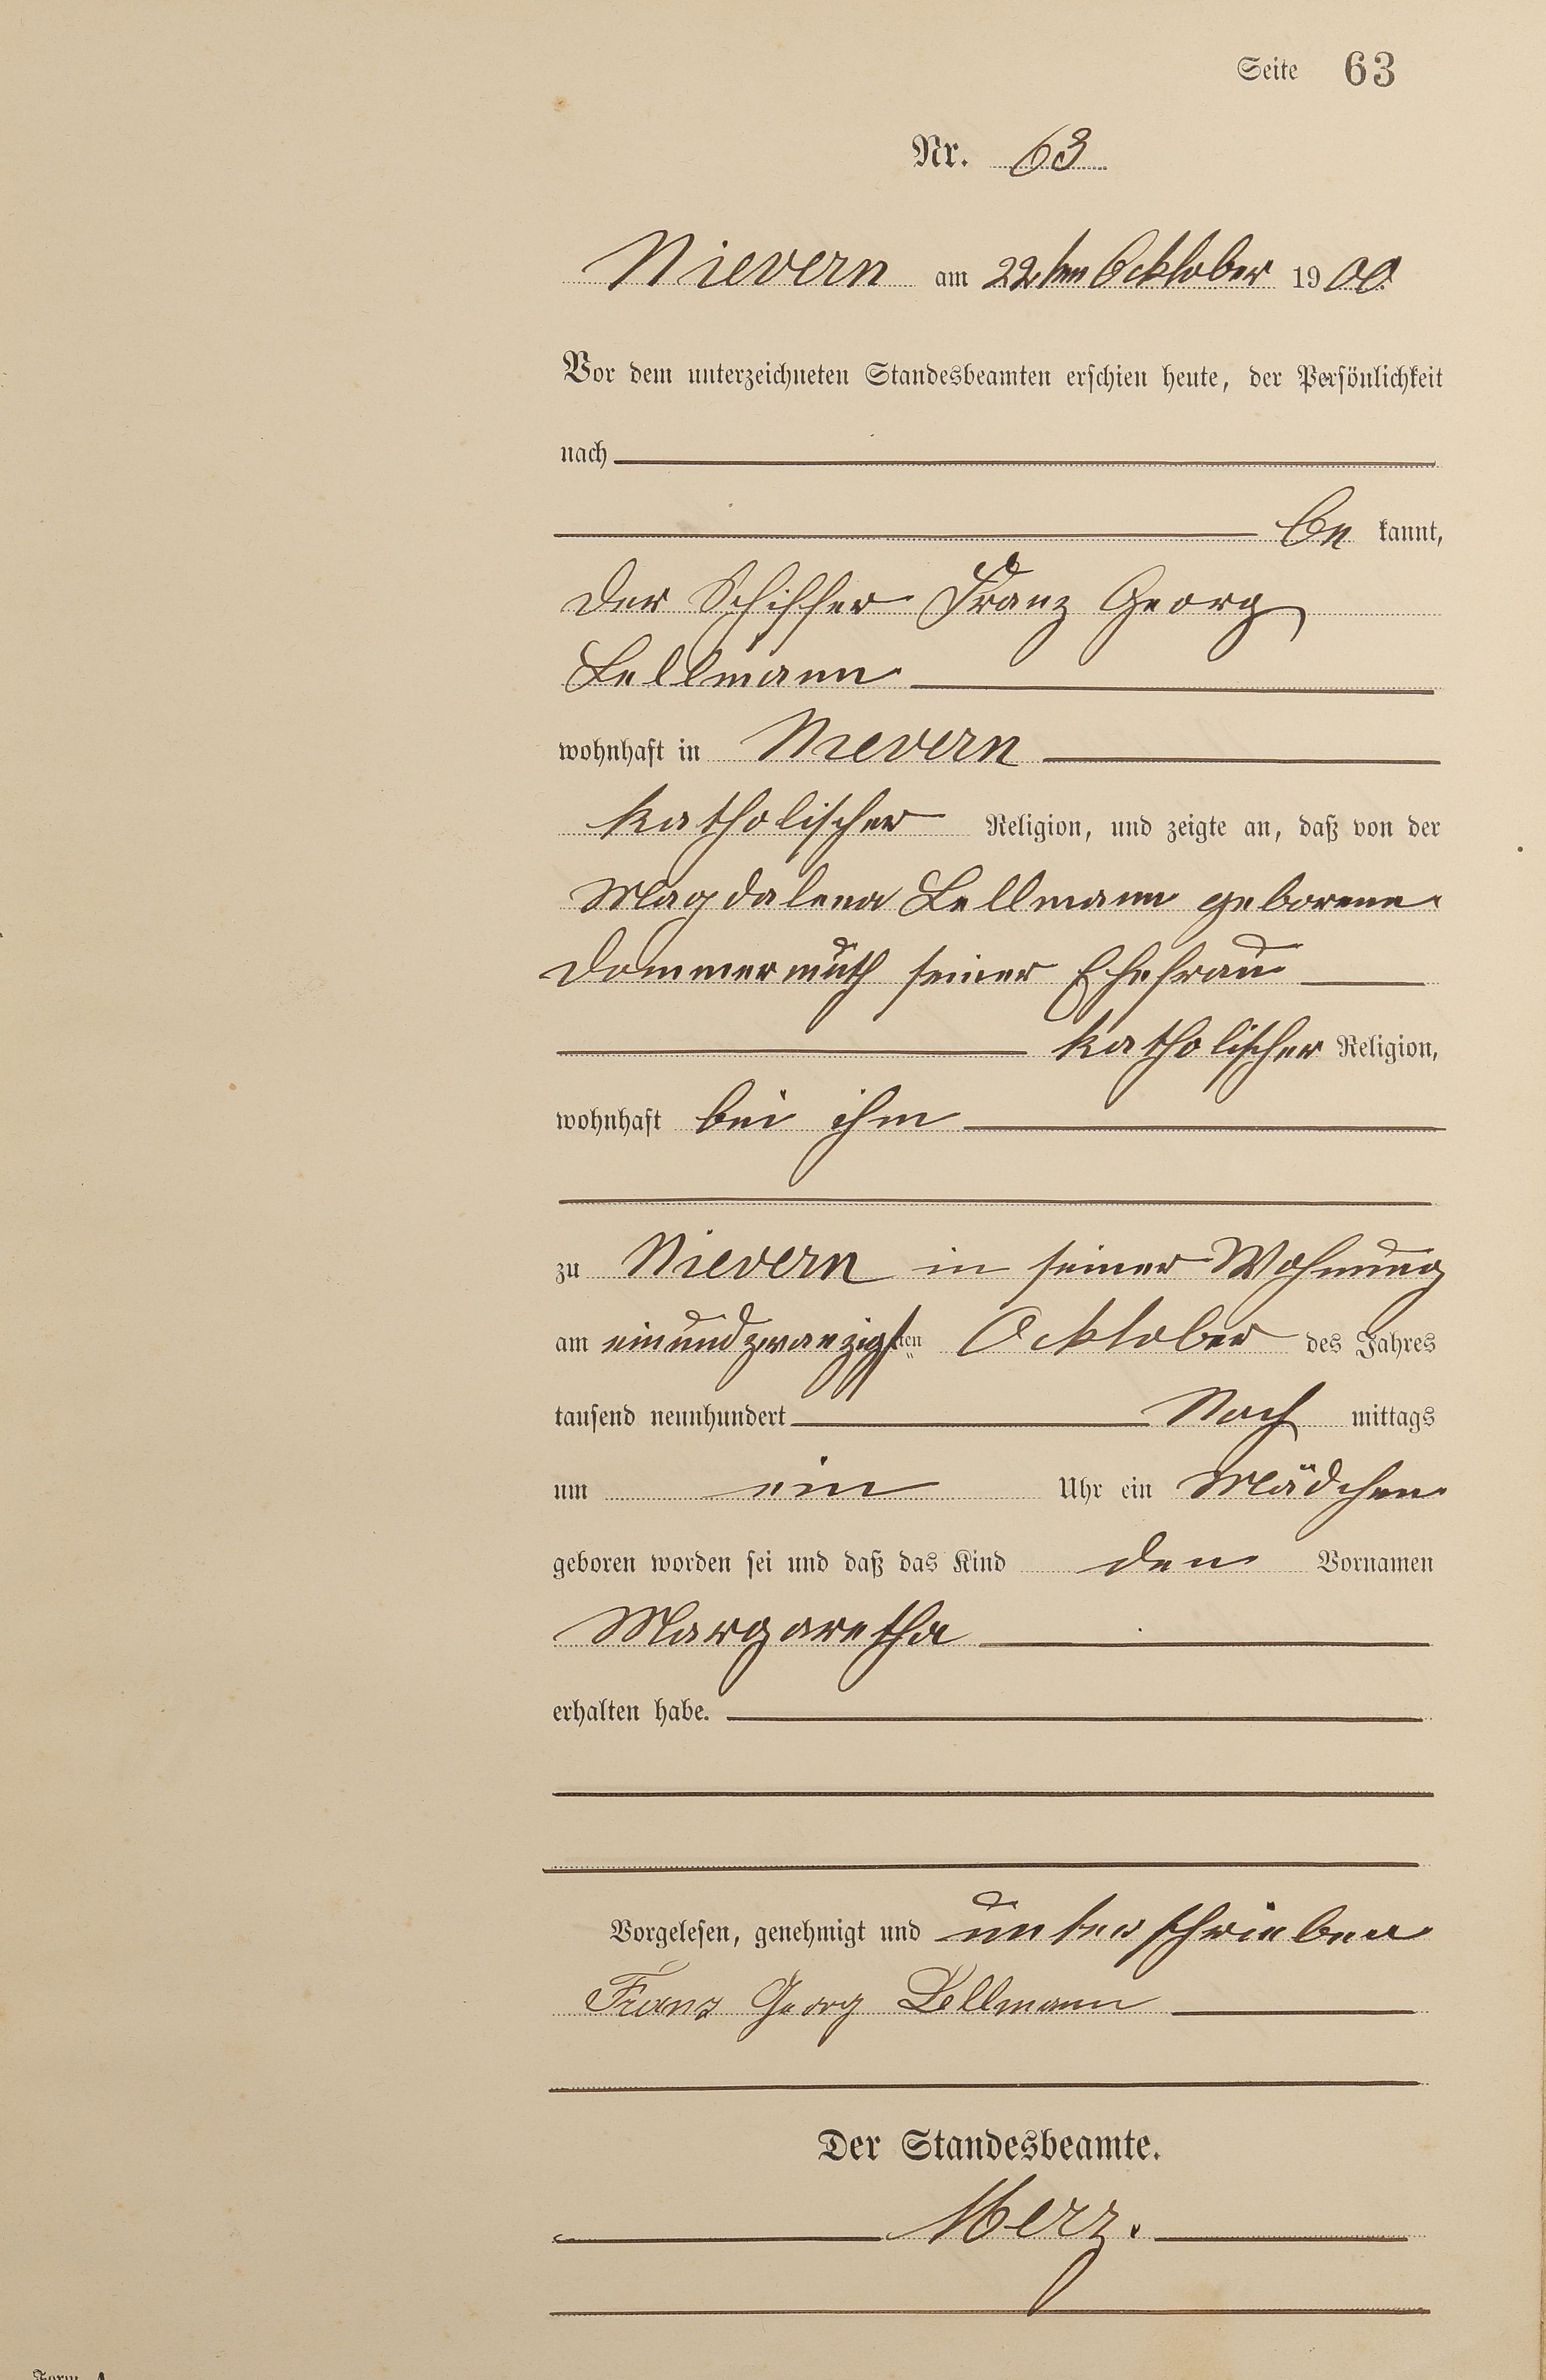 Seite 63
Nr. 63
Nievern am 22ten Ocktober 1900
Vor dem unterzeichneten Standesbeamten erschien heute, der Persönlichkeit
nach
be kannt,
der Schiffer Franz Georg
Lellmann
wohnhaft in Nievern
katholischer Religion, und zeigte an, daß von der
Magdalena Lellmann geborene
Dommermuth seiner Ehefrau
katholischer Religion,
wohnhaft bei ihm
zu Nievern in seiner Wohnung
am einundzwanzigsten Ocktober des Jahres
tausend neunhundert Nach mittags
um ein Uhr ein Mädchen
geboren worden sei und daß das Kind den Vornamen
Margaretha
erhalten habe.
Vorgelesen, genehmigt und unterschrieben
Franz Georg Lellmann
Der Standesbeamte.
Merz.